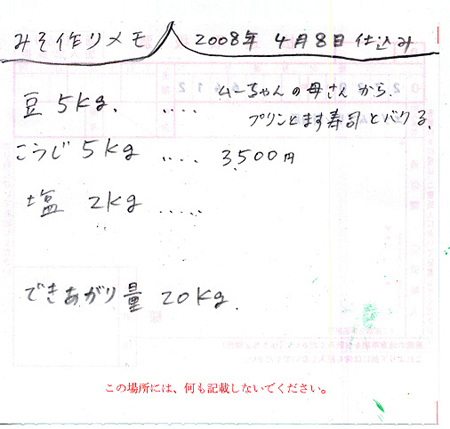 みそ作りメモ 2008年 4月8日 仕込み
豆 5kg. ‥‥ ムーちゃんの母さんから、
プリンとます寿司とバクる。
こうじ 5kg ‥‥ 3,500円
塩 2kg ‥‥‥
できあがり量 20kg.
この場所には、何も記載しないでください。